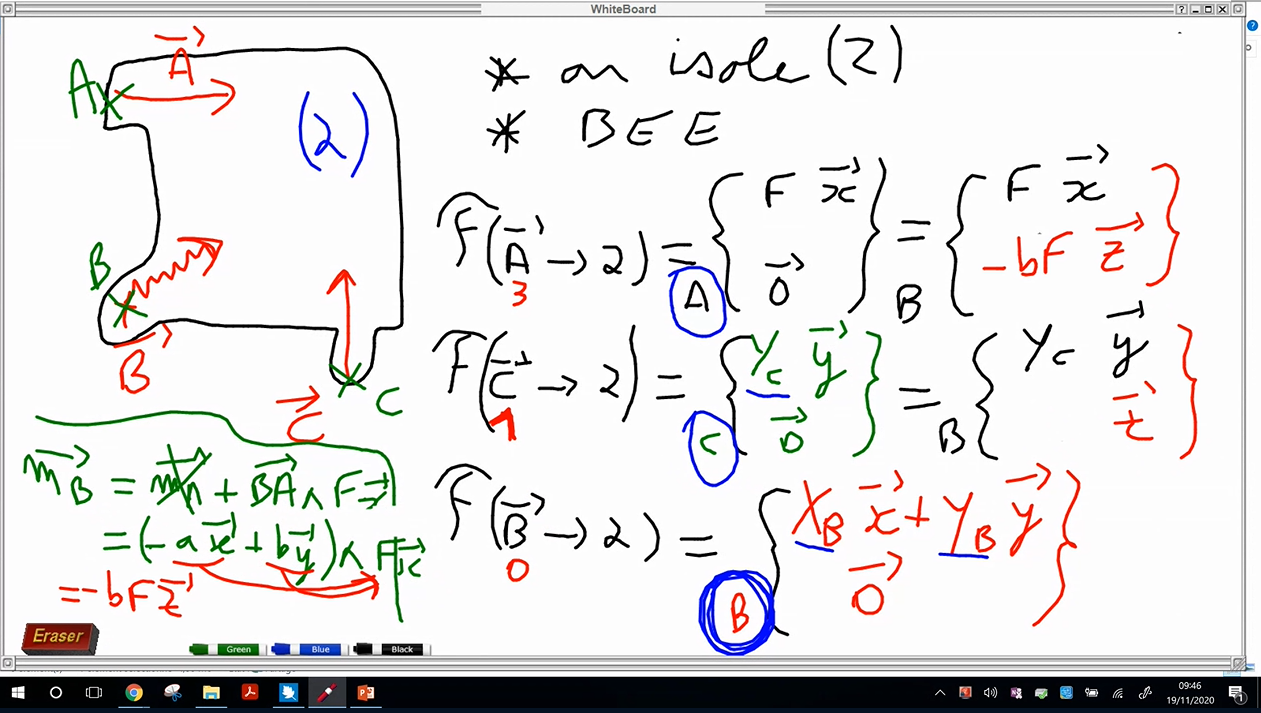 WhiteBoard
A
A⃗
(2)
B
B⃗
C⃗
C
* on isole (2)
* BEE
F(A⃗ → 2) = A { F x⃗ } = B { F x⃗ }
3 0⃗ -bF z⃗
F(C⃗ → 2) = C { Y_C y⃗ } = B { Y_C y⃗ }
1 0⃗ z⃗
F(B⃗ → 2) = B { X_B x⃗ + Y_B y⃗ }
0 0⃗
m_B⃗ = m_A⃗ + BA⃗ ∧ F x⃗
= (-a x⃗ + b y⃗) ∧ F x⃗
= -bF z⃗
Eraser
Green Blue Black
09:46
19/11/2020